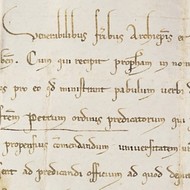 Venerabilibus fr̄ibus Archiep̄is et
ben̄. Cum qui recipit proph̄am in no
pro eo qd ministrant pabulum verbi d
Petrum ordinis predicatorum qui
propensius com̄endandum universitatem u
ad predicandi officium ad quod d